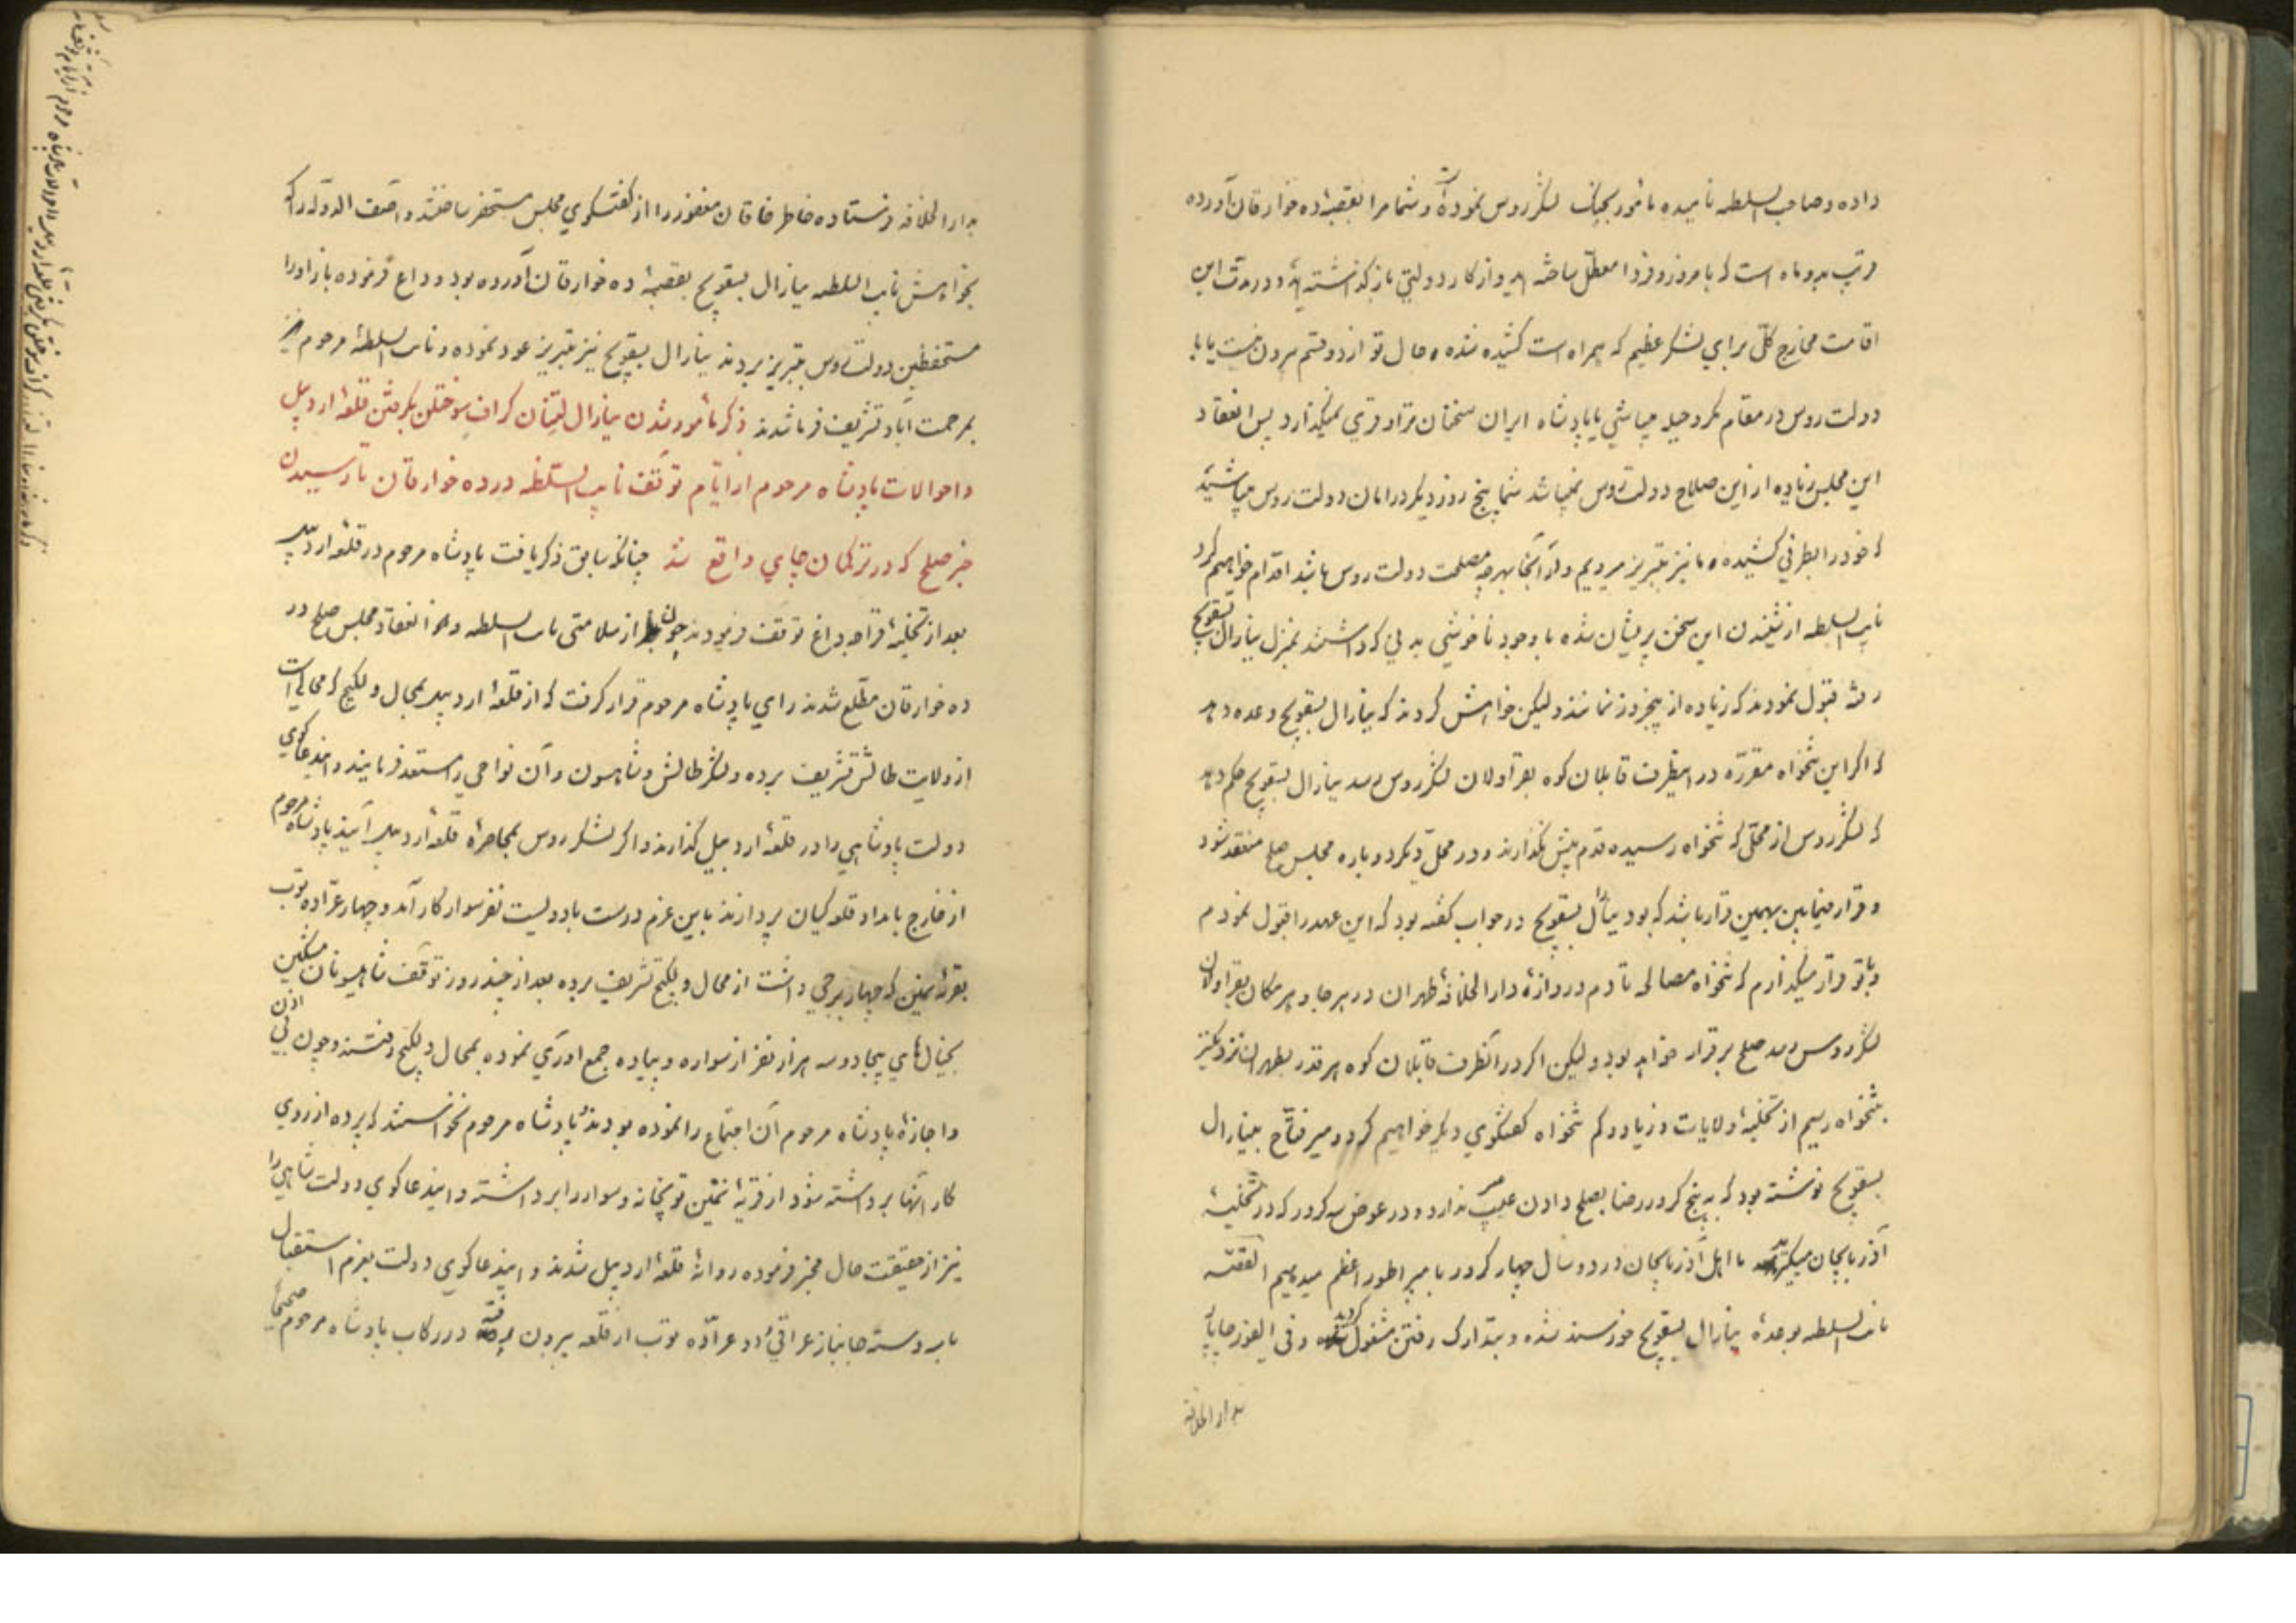 داده و صاحب السلطه نامیده مأمور بجنگ لشکر روس نموده و شما مرا بقصبهٔ ده خوارقان آورده
قریب بدو ماه است که بامروز و فردا معطل ساخته اید و از کار دولتی باز گذاشته اید و در مدت این
اقامت مخارج کلی برای لشکر عظیم که همراه است کشیده شده و حال تو از دو قسم بیرون نیست یا با
دولت روس در مقام مکر و حیله میباشی یا پادشاه ایران سخنان ترا وقری نمیگذارد پس انعقاد
این مجلس زیاده از این صلاح دولت روس نمیباشد شما پنج روز دیگر در امان دولت روس میباشید
که خود را بطرفی کشیده و ما نیز بتبریز میرویم و از آنجا بهرچه مصلحت دولت روس باشد اقدام خواهیم کرد
نایب السلطه از شنیدن این سخن پریشان شده با وجود ناخوشی بدنی که داشتند بمنزل ینارال بسقویچ
رفته قبول نمودند که زیاده از پنجروز نمانند ولیکن خواهش کردند که ینارال بسقویچ وعده دهد
که اگر این تنخواه مقرره در اینطرف قاپلان کوه بقراولان لشکر روس رسد ینارال بسقویچ حکم دهد
که لشکر روس از محلی که تنخواه رسیده قدم پیش نگذارند و در محل دیگر دوباره مجلس صلح منعقد شود
و قرار فیمابین بهمین قرار باشد که بود ینارال بسقویچ در جواب گفته بود که این عهد را قبول نمودم
و با تو قرار میگذارم که تنخواه مصالحه تا دم دروازهٔ دار الخلافهٔ طهران در هر جا و هر مکان بقراولان
لشکر روس رسد صلح برقرار خواهد بود ولیکن اگر در آنطرف قاپلان کوه هر قدر بطهران نزدیکتر
بتنخواه رسیم از تخلیهٔ ولایات و زیاد و کم تنخواه گفتگوی دیگر خواهیم کرد و میر فتاح بینارال
بسقویچ نوشته بود که به پنج کرور رضا بصلح دادن عیب ندارد و در عوض سه کرور که در تخلیهٔ
آذربایجان میگیرید ما اهل آذربایجان در دو سال چهار کرور بامپراطور اعظم میدهیم القصه
نایب السلطه بوعدهٔ ینارال بسقویچ خورسند شده و بتدارک رفتن مشغول گردید و فی الفور چاپار
بدار الخلافه
بدار الخلافه فرستاده خاطر خاقان مغفور را از گفتگوی مجلس مستحضر ساختند و آصف الدوله را که
بخواهش نایب السلطه ینارال بسقویچ بقصبهٔ ده خوارقان آورده بود وداع فرموده باز او را
مستحفظین دولت روس بتبریز بردند ینارال بسقویچ نیز بتبریز عود نموده و نایب السلطهٔ مرحوم نیز
بمرحمت آباد تشریف فرما شدند ذکر مأمور شدن ینارال لیتنان گراف سوختلن بگرفتن قلعهٔ اردبیل
و احوالات پادشاه مرحوم از ایام توقف نایب السلطه در ده خوارقان تا رسیدن
خبر صلح که در ترکمان چای واقع شد چنانکه سابق ذکر یافت پادشاه مرحوم در قلعهٔ اردبیل
بعد از تخلیهٔ قراجه داغ توقف فرمودند چون از سلامتی نایب السلطه و انعقاد مجلس صلح در
ده خوارقان مطلع شدند رای پادشاه مرحوم قرار گرفت که از قلعهٔ اردبیل بمحال ولکیج که محالی است
از ولایت طالش تشریف برده و لشکر طالش و شاهسون و آن نواحی را مستعد فرمایند و ایندعاگوی
دولت پادشاهی را در قلعهٔ اردبیل گذارند و اگر لشکر روس بمحاصرهٔ قلعهٔ اردبیل آیند پادشاه مرحوم
از خارج بامداد قلعه کیان پردازند باین عزم درست با دویست نفر سوار کار آمد و چهار عراده توپ
بقریهٔ نمین که چهار برجی داشت از محال ولکیج تشریف برده بعد از چند روز توقف شاهسونان مشکین
بخیال های بیجا دو سه هزار نفر از سواره و پیاده جمع اوری نموده بمحال ولکیج رفتند و چون بی اذن
و اجازهٔ پادشاه مرحوم آن اجتماع را نموده بودند پادشاه مرحوم نخواستند که پرده از روی
کار آنها برداشته شود از قریهٔ نمین توپخانه و سوار را برداشته و اینذعاگوی دولت شاهی را
نیز از حقیقت حال مخبر فرموده روانهٔ قلعهٔ اردبیل شدند و اینذعاگوی دولت بعزم استقبال
با سه دسته جانباز عراقی و دو عراده توپ از قلعه بیرون رفته در رکاب پادشاه مرحوم صحیحاً